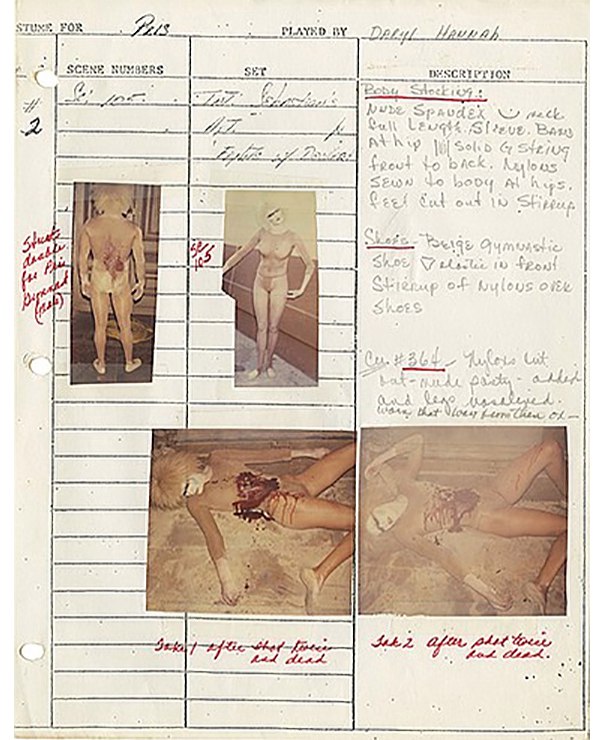 STUME FOR Pris PLAYED BY DARYL HANNAH
SCENE NUMBERS SET DESCRIPTION
#
2
Int. Sebastian's
Apt.
Fights w/ Deckard
Body Stocking:
NUDE SPANDEX neck
full Length. Sleeve. BAND
At hip SOLID G STRING
front to back. Nylons
SEWN to body At hips.
feet cut out in Stirrup
Shoes BEIGE gymnastic
SHOE elastic IN front
Stirrup of NYLONS OVER
SHOES
#364 - Nylons cut
out - nude panty - added
and legs
worn that way from then on -
Stunt
double
for Pris
(male)
Take 1 after shot twice
and dead
Take 2 after shot twice
and dead.